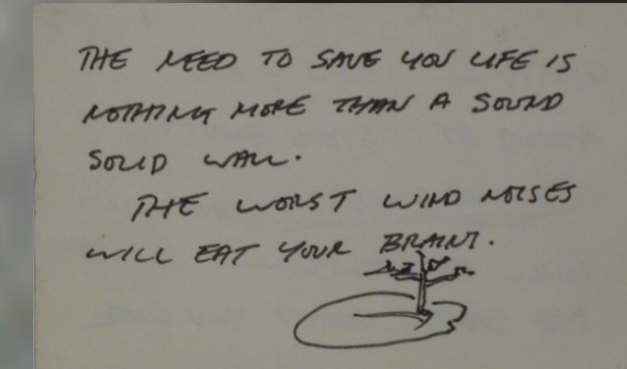 THE NEED TO SAVE YOU LIFE IS
NOTHING MORE THAN A SOUND
SOLID WALL.
THE WORST WIND NOISES
WILL EAT YOUR BRAIN.